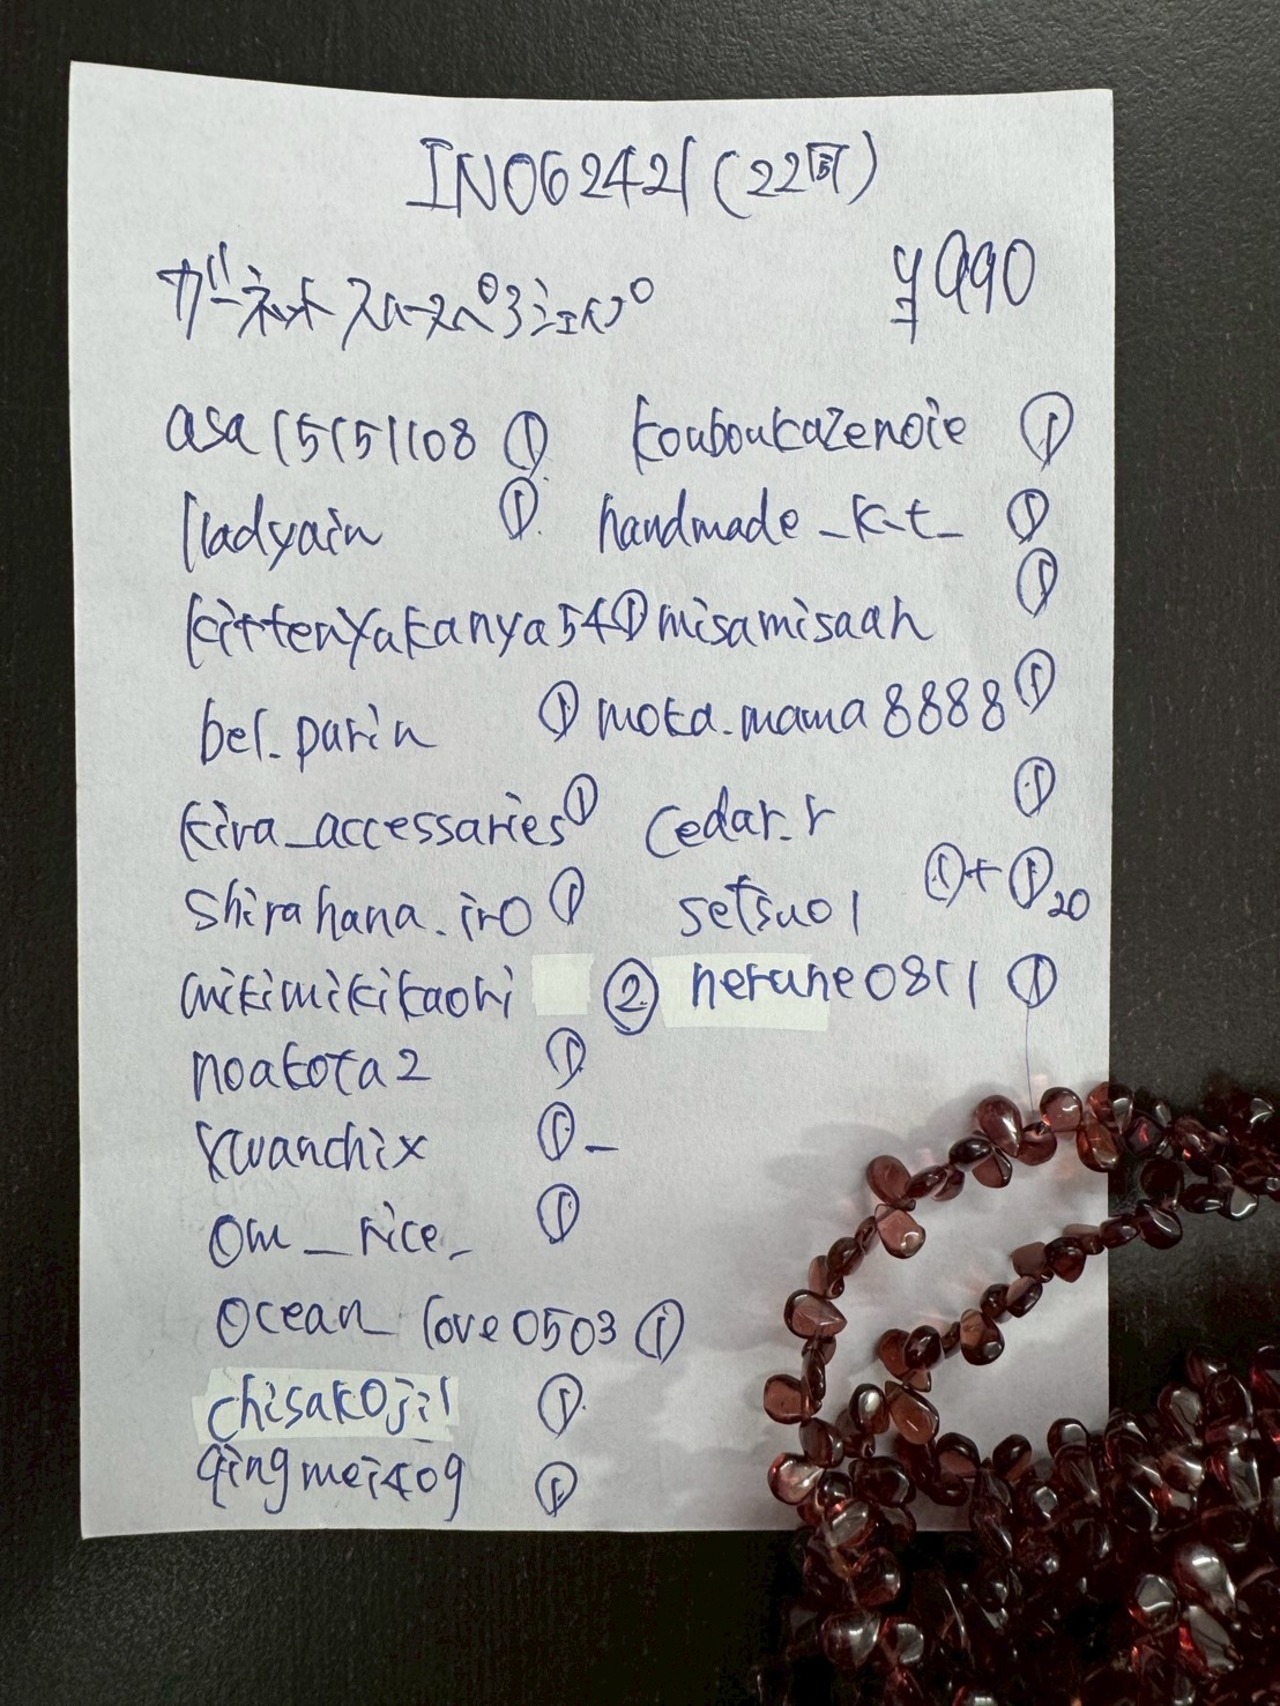 IN062421(22可)
ガーネットスムースペアシェイプ ¥990
asa15151108 ① kouboukazenoie ①
lladyain ① handmade_k.t_ ①
kittenyakanya54① misamisaah ①
bel.parin ① moka.mama8888 ①
kira_accessaries① cedar.r ①
shirahana.iro ① setsuo1 ①+①20
mikimikikaori ② nerune0811 ①
noakota2 ①
xwanchix ①-
om_rice_ ①
ocean_love0503 ①
chisakoji1 ①
qingmei409 ①